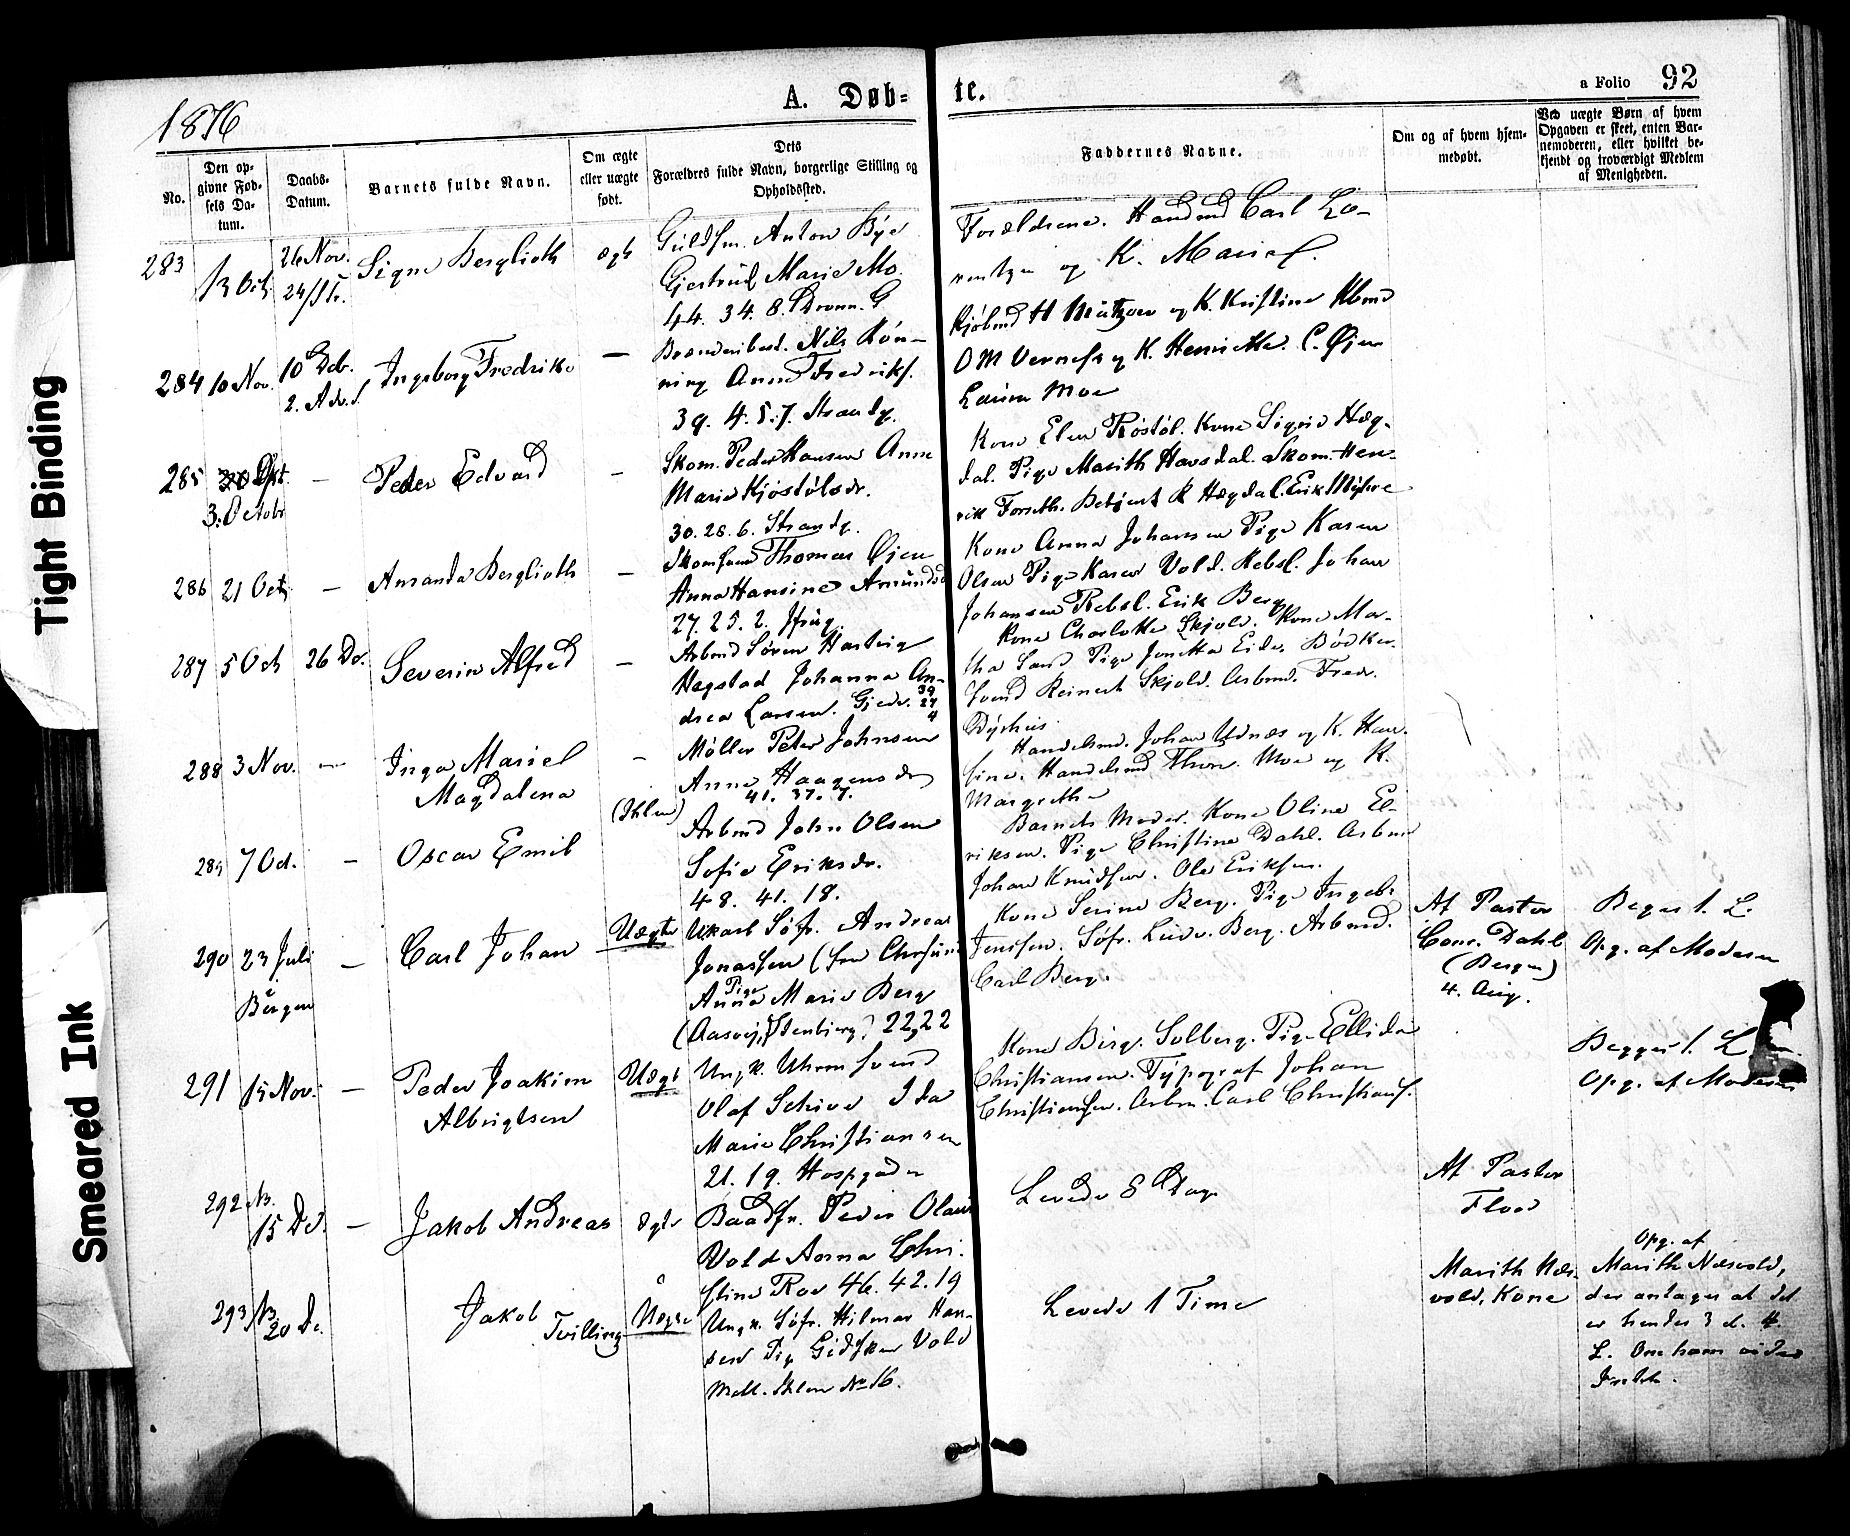 Tight Binding
Smeared Ink
1876
A. Døb-
te.
a Folio 92
No.
Den op-
givne Fød-
sels Da-
tum.
Daabs-
Datum.
Barnets fulde Navn.
Om ægte
eller uægte
født.
Dets
Forældres fulde Navn, borgerlige Stilling og
Opholdssted.
Faddernes Navne.
Om og af hvem hjem-
medøbt.
Ved uægte Børn af hvem
Opgaven er skeet, enten Bar-
nemoderen, eller hvilket be-
kjendt og troværdigt Medlem
af Menigheden.
283
13 Oct
26 Nov.
24/s Tr.
Signe Berglioth
ægt
Guldsm. Anton Bye
Gjertrud Marie Mo.
44. 34. 8. Dronn. G
Forældrene. Handmd Carl Lo-
rentzen og K. Marie
284
10 Nov.
10 Deb.
2. Adv. S.
Ingeborg Fredrike
—
Nils Rön-
ning Anne Fredriks.
39. 4. 5. 7. Strandg.
Kjöbmd H og K. Kristine
O M Verness og K. Henriette. C. Øjen
Laura Moe
285
3. Octobr
—
Peder Edvard
—
Skom. Peder Hansen Anne
Marie Kjöstölsdr.
30. 28. 6. Strandg.
Kone Elen Röstöl. Kone Sigrid Hæg-
dal. Pige Marith Havsdal. Skom. Hen-
rik Forseth. Betjent R Hægdal. Erik Myhre
286
21 Oct
—
Amanda Berglioth
—
Skomsvend Thomas Øjen
Anna Hansine Amundsd
27. 25. 2.
Kone Anna Johansen Pige Karen
Olsen Pige Karen Vold. Rebsl. Johan
Johansen Rebsl. Erik Berg
287
5 Oct
26 De.
Severin Alfred
—
Arbmd Sören Hartvig
Hegstad Johanna An-
drea Larsen. Gjedv. 39
27
4
Kone Charlotte Skjold. Kone Mar-
tha Sand Pige Jonetta Eide. Bödker-
svend Reinert Skjold. Arbmd. Fredr.
Dyrhus
288
3 Nov.
—
Inga Mariel
Magdalena
-
(Ihlen)
Möller Peter Johnsen
Anne Haagensdr
41. 37. 7.
Handelsmd. Johan Udnæs og K. Han-
sine. Handelsmd Thom. Moe og K.
Margrethe
289
7 Oct.
—
Oscar Emil
Arbmd John Olsen
Sofie Eriksdr.
48. 41. 18.
Barnets Moder. Kone Oline El-
riksen. Pige Christine Dahl. Arbmd
Johan Knudsen. Ole Eriksen.
290
23 Juli
i
Bergen
—
Carl Johan
Uægte
Ukarl Söfr. Andreas
Jonassen (fra Chrsund
Pige
Anna Marie Berg
(Aasvej, Stenberg) 22,22
Kone Serine Berg. Pige Ingebr
Jenssen. Söfr. Ludv. Berg. Arbmd.
Carl Berg.
Af Pastor
Conr. Dahl
(Bergen)
4. Aug.
Begges 1. L.
Opg. af Moderen
291
15 Nov.
—
Peder Joakim
Albrigtsen
Uægt
Ungk. Uhrmsvend
Olaf Schive Ida
Marie Christiansen
21. 19. Hospgaden
Kone Birg. Solberg. Pige Ellida
Christiansen. Typograf Johan
Christiansen. Arbm. Carl Christians.
Begges 1. L
Opg. af Moderen
292
15 De.
—
Jakob Andreas
ægte
Baadsfr. Peder Olaus
Vold Anna Chri-
stine Roe 46. 42. 19
Levede 8 Dage
Af Pastor
Flood
293
20 De.
Jakob
Tvilling
Uægte
Ungk. Söfr. Hilmar Han-
sen Pig Gidsken Vold
Mell. Ihlen No 16.
Levede 1 Time
Marith Næs-
vold, Kone
Opg. af
Marith Næsvold,
der antager at det
er hendes 3 d.
L.